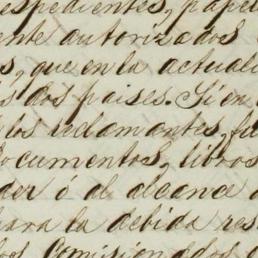 espedientes, pape
ente autorizados
s, que en la actuali
s dos paises. Si en
los reclamantes, fu
ocumentos, libros
der ó al alcance
para la debida res
los Comisionados